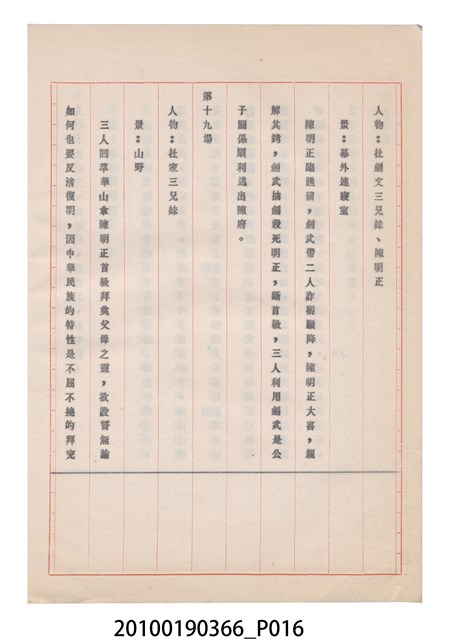 人物：杜劍文三兄妹、陳明正
景：幕外連寢室
陳明正臨睡前，劍武帶二人詐稱願降，陳明正大喜，親
解其銬，劍武抽劍殺死明正，斷首級，三人利用劍武是公
子關係順利逃出陳府。
第十九場
人物：杜家三兄妹
景：山野
三人回萃華山拿陳明正首級拜奠父母之靈，欲設誓無論
如何也要反清復明，因中華民族的特性是不屈不撓的拜完
20100190366_P016